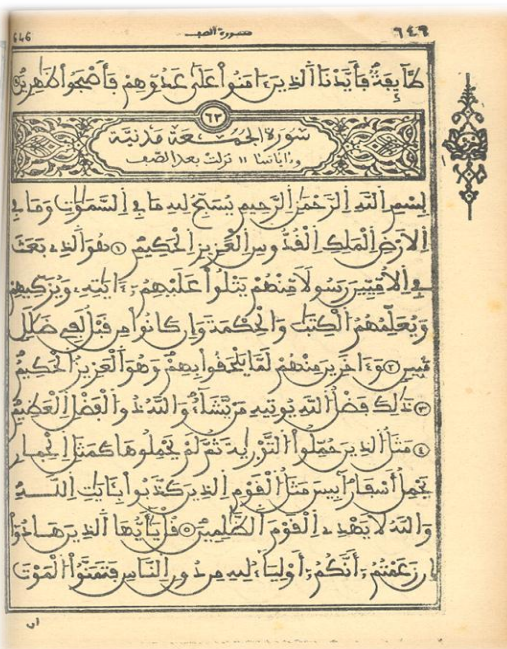 646 سورة الصف ٦٤٦
طَّآئِفَةٌ فَأَيَّدْنَا ٱلذِينَ ءَامَنُواْ عَلَىٰ عَدُوِّهِمْ فَأَصْبَحُواْ ظَٰهِرِينَ
٦٣
سورة الجمعة مدنية
وءاياتها ١١ نزلت بعد الصف
بِسْمِ ٱللَّهِ ٱلرَّحْمَٰنِ ٱلرَّحِيمِ يُسَبِّحُ لِلهِ مَا فِے ٱلسَّمَٰوَٰتِ وَمَا فِے
ٱلَارْضِ ٱلْمَلِكِ ٱلْقُدُّوسِ ٱلْعَزِيزِ ٱلْحَكِيمِ ١ هُوَ ٱلذِے بَعَثَ
فِے ٱلُامِّيِّـۧنَ رَسُولًا مِّنْهُمْ يَتْلُواْ عَلَيْهِمُۥٓ ءَايَٰتِهِۦ وَيُزَكِّيهِمْ
وَيُعَلِّمُهُمُ ٱلْكِتَٰبَ وَٱلْحِكْمَةَ وَإِن كَانُواْ مِن قَبْلُ لَفِے ضَلَٰلٖ
مُّبِينٖ ٢ وَءَاخَرِينَ مِنْهُمْ لَمَّا يَلْحَقُواْ بِهِمْ وَهُوَ ٱلْعَزِيزُ ٱلْحَكِيمُ
٣ ذَٰلِكَ فَضْلُ ٱللَّهِ يُوتِيهِ مَنْ يَّشَآءُ وَٱللَّهُ ذُو ٱلْفَضْلِ ٱلْعَظِيمِ
٤ مَثَلُ ٱلذِينَ حُمِّلُواْ ٱلتَّوْر۪يٰةَ ثُمَّ لَمْ يَحْمِلُوهَا كَمَثَلِ ٱلْحِمارِ
يَحْمِلُ أَسْفَارَۢا بِيسَ مَثَلُ ٱلْقَوْمِ ٱلذِينَ كَذَّبُواْ بِـَٔايَٰتِ ٱللَّهِ
وَٱللَّهُ لَا يَهْدِے ٱلْقَوْمَ ٱلظَّٰلِمِينَ ٥ قُلْ يَٰٓأَيُّهَا ٱلذِينَ هَادُوٓاْ
إِن زَعَمْتُمُۥٓ أَنَّكُمُۥٓ أَوْلِيَآءُ لِلهِ مِن دُونِ ٱلنَّاسِ فَتَمَنَّوُاْ ٱلْمَوْتَ
إن